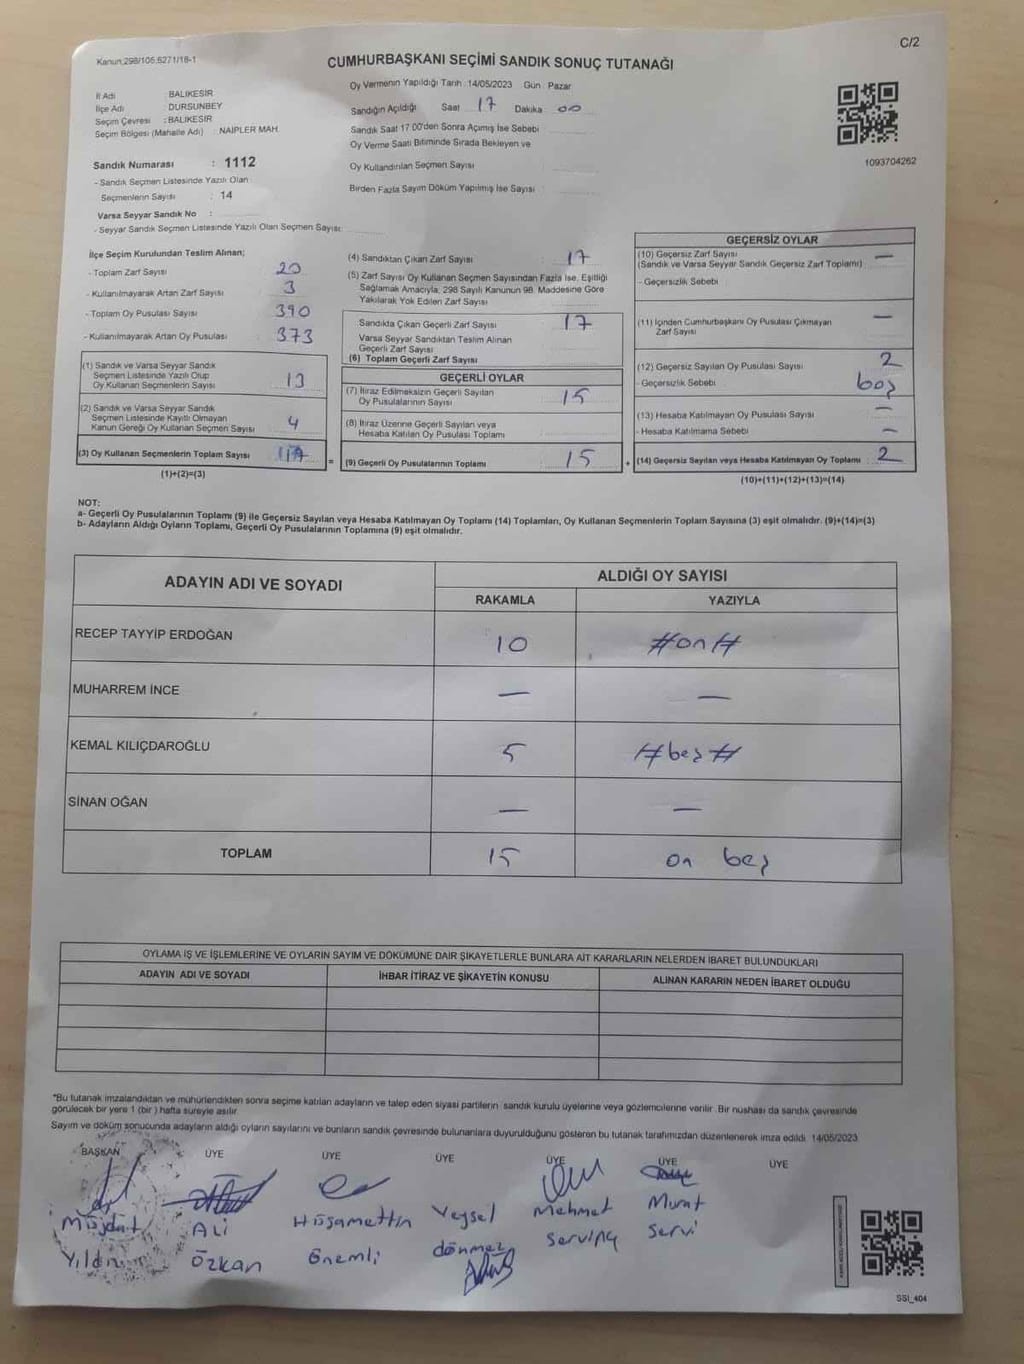 C/2
Kanun,298/105,5271/18-1
CUMHURBAŞKANI SEÇİMİ SANDIK SONUÇ TUTANAĞI
İl Adı : BALIKESİR
İlçe Adı : DURSUNBEY
Seçim Çevresi : BALIKESİR
Seçim Bölgesi (Mahalle Adı) : NAİPLER MAH.
Sandık Numarası : 1112
- Sandık Seçmen Listesinde Yazılı Olan
Seçmenlerin Sayısı : 14
Varsa Seyyar Sandık No :
- Seyyar Sandık Seçmen Listesinde Yazılı Olan Seçmen Sayısı:
Oy Vermenin Yapıldığı Tarih : 14/05/2023 Gün : Pazar
Sandığın Açıldığı Saat 17 Dakika 00
Sandık Saat 17:00'den Sonra Açımış İse Sebebi
Oy Verme Saati Bitiminde Sırada Bekleyen ve
Oy Kullandırılan Seçmen Sayısı
Birden Fazla Sayım Döküm Yapılmış İse Sayısı
1093704262
İlçe Seçim Kurulundan Teslim Alınan;
- Toplam Zarf Sayısı 20
- Kullanılmayarak Artan Zarf Sayısı 3
- Toplam Oy Pusulası Sayısı 390
- Kullanılmayarak Artan Oy Pusulası 373
(1) Sandık ve Varsa Seyyar Sandık
Seçmen Listesinde Yazılı Olup
Oy Kullanan Seçmenlerin Sayısı 13
(2) Sandık ve Varsa Seyyar Sandık
Seçmen Listesinde Kayıtlı Olmayan
Kanun Gereği Oy Kullanan Seçmen Sayısı 4
(3) Oy Kullanan Seçmenlerin Toplam Sayısı
(1)+(2)=(3)
(4) Sandıktan Çıkan Zarf Sayısı 17
(5) Zarf Sayısı Oy Kullanan Seçmen Sayısından Fazla İse, Eşitliği
Sağlamak Amacıyla, 298 Sayılı Kanunun 98. Maddesine Göre
Yakılarak Yok Edilen Zarf Sayısı
Sandıkta Çıkan Geçerli Zarf Sayısı 17
Varsa Seyyar Sandıktan Teslim Alınan
Geçerli Zarf Sayısı
(6) Toplam Geçerli Zarf Sayısı
GEÇERLİ OYLAR
(7) İtiraz Edilmeksizin Geçerli Sayılan
Oy Pusulalarının Sayısı 15
(8) İtiraz Üzerine Geçerli Sayılan veya
Hesaba Katılan Oy Pusulası Toplamı
= (9) Geçerli Oy Pusulalarının Toplamı 15 +
GEÇERSİZ OYLAR
(10) Geçersiz Zarf Sayısı —
(Sandık ve Varsa Seyyar Sandık Geçersiz Zarf Toplamı)
- Geçersizlik Sebebi
(11) İçinden Cumhurbaşkanı Oy Pusulası Çıkmayan —
Zarf Sayısı
(12) Geçersiz Sayılan Oy Pusulası Sayısı 2
- Geçersizlik Sebebi boş
(13) Hesaba Katılmayan Oy Pusulası Sayısı —
- Hesaba Katılmama Sebebi —
(14) Geçersiz Sayılan veya Hesaba Katılmayan Oy Toplamı 2
(10)+(11)+(12)+(13)=(14)
NOT:
a- Geçerli Oy Pusulalarının Toplamı (9) ile Geçersiz Sayılan veya Hesaba Katılmayan Oy Toplamı (14) Toplamları, Oy Kullanan Seçmenlerin Toplam Sayısına (3) eşit olmalıdır. (9)+(14)=(3)
b- Adayların Aldığı Oyların Toplamı, Geçerli Oy Pusulalarının Toplamına (9) eşit olmalıdır.
ADAYIN ADI VE SOYADI
ALDIĞI OY SAYISI
RAKAMLA YAZIYLA
RECEP TAYYİP ERDOĞAN 10 #on#
MUHARREM İNCE — —
KEMAL KILIÇDAROĞLU 5 #beş#
SİNAN OĞAN — —
TOPLAM 15 on beş
OYLAMA İŞ VE İŞLEMLERİNE VE OYLARIN SAYIM VE DÖKÜMÜNE DAİR ŞİKAYETLERLE BUNLARA AİT KARARLARIN NELERDEN İBARET BULUNDUKLARI
ADAYIN ADI VE SOYADI İHBAR İTİRAZ VE ŞİKAYETİN KONUSU ALINAN KARARIN NEDEN İBARET OLDUĞU
*Bu tutanak imzalandıktan ve mühürlendikten sonra seçime katılan adayların ve talep eden siyasi partilerin sandık kurulu üyelerine veya gözlemcilerine verilir. Bir nüshası da sandık çevresinde
görülecek bir yere 1 (bir) hafta süreyle asılır.
Sayım ve döküm sonucunda adayların aldığı oyların sayılarını ve bunların sandık çevresinde bulunanlara duyurulduğunu gösteren bu tutanak tarafımızdan düzenlenerek imza edildi. 14/05/2023
BAŞKAN ÜYE ÜYE ÜYE ÜYE ÜYE ÜYE
Müjdat Ali Hüsamettin Veysel Mehmet Murat
Özkan Önemli dönmez Servi
SSİ_404